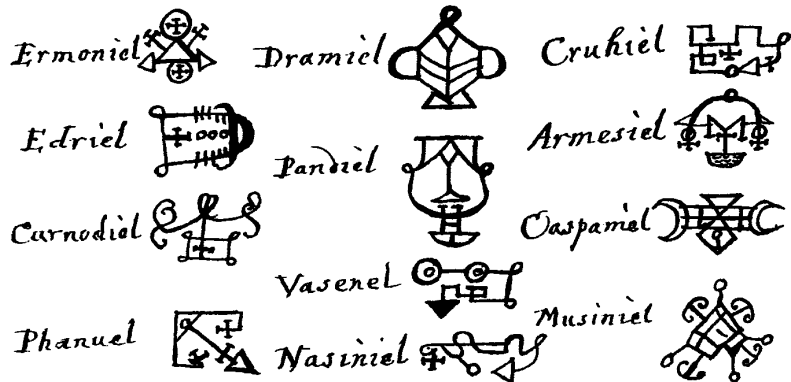 Ermoniel
Edriel
Curnodiel
Phanuel
Dramiel
Pandiel
Vasenel
Nasiniel
Cruhiel
Armesiel
Oaspamiel
Musiniel